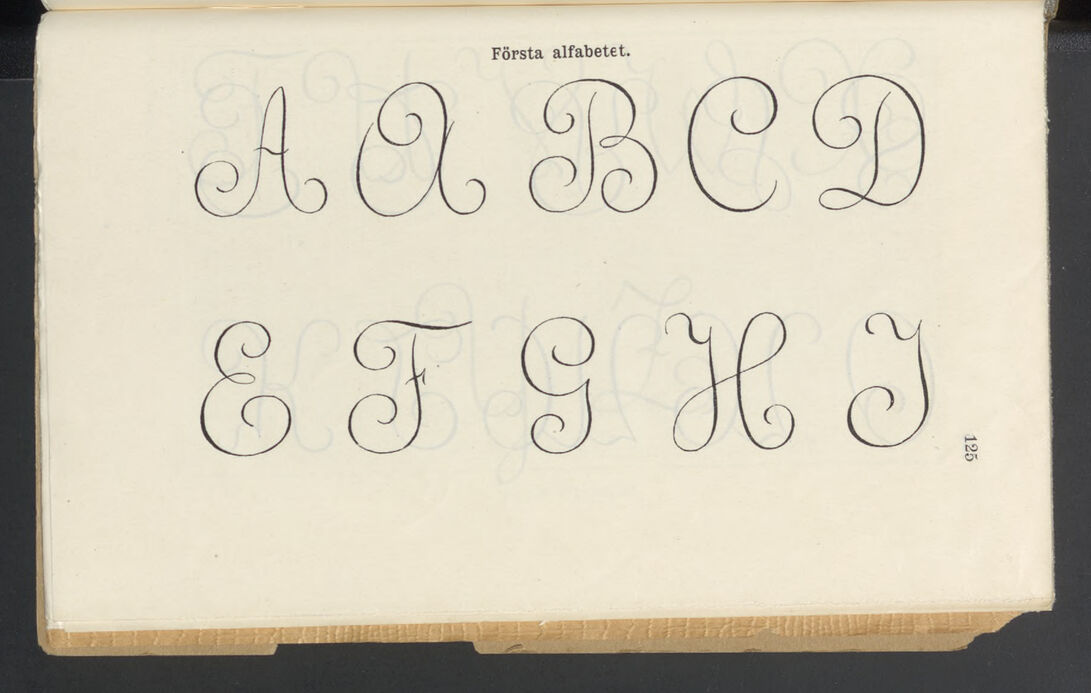 Första alfabetet.
A A B C D
E F G H I
125